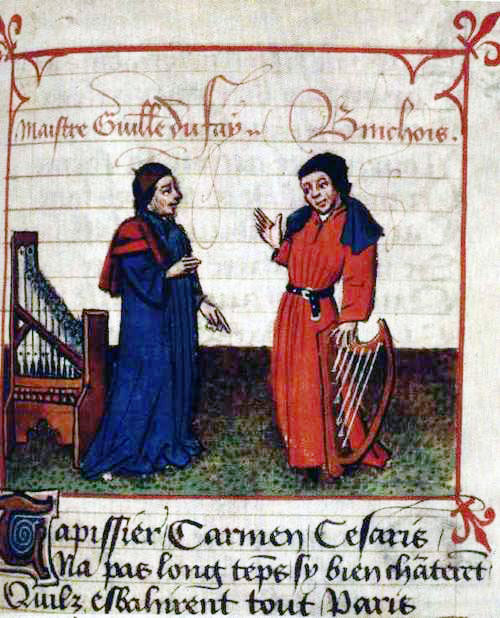 Maistre Guille du fay Binchois.
Tapissier Carmen Cesaris
Na pas long tēps sy bien chāterēt
Quilz esbahirent tout Paris